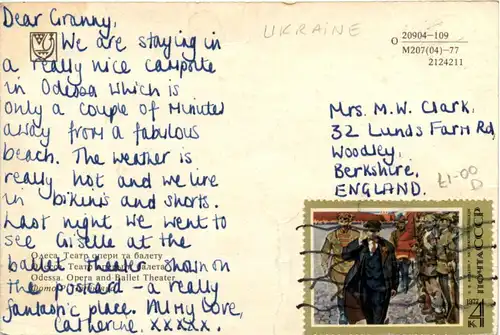 Dear Granny,
We are staying in
a really nice campsite
in Odessa which is
only a couple of minutes
away from a fabulous
beach. The weather is
really hot and we live
in bikinis and shorts.
Last night we went to
see Giselle at the
ballet theater shown on
the postcard – a really
fantastic place. All my Love,
Catherine. xxxxx.
Одеса. Театр опери та балету
Одесса. Театр оперы и балета
Odessa. Opera and Ballet Theater
Фото
UKRAINE
О 20904-109
М207(04)-77
2124211
Mrs. M.W. Clark,
32 Lunds Farm Rd,
Woodley,
Berkshire,
ENGLAND.
£1-00
D
ПОЧТА СССР
1977
4 К